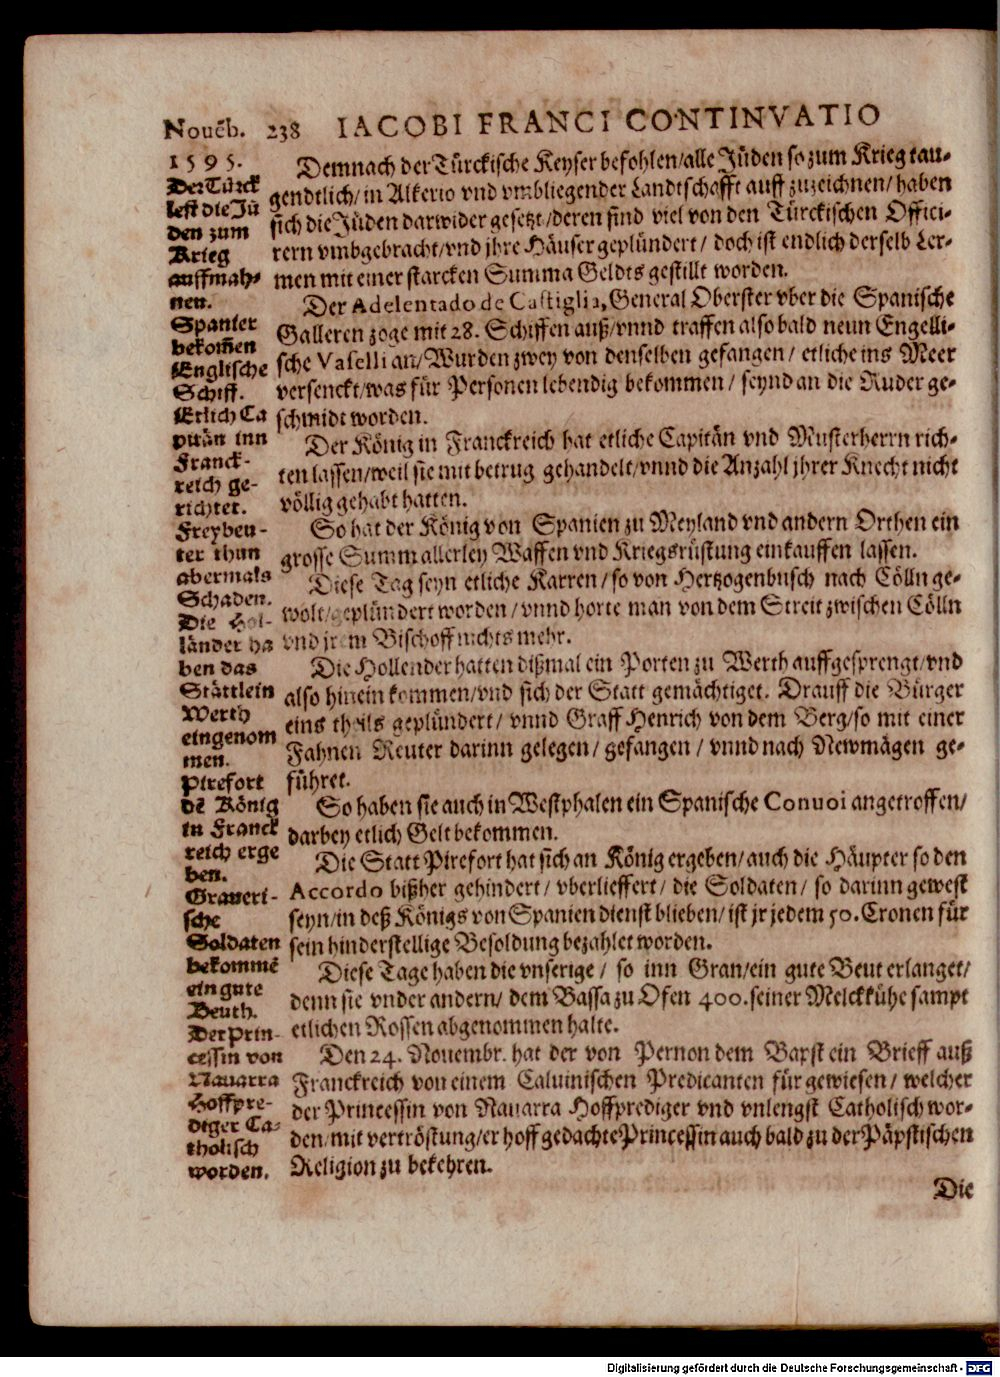 Nouẽb. 238 IACOBI FRANCI CONTINVATIO
1595.
Der Türck
lest die Jü
den zum
Krieg
auffmah-
nen.
Spanier
bekom̃en
Englische
Schiff.
Etlich Ca
pitän inn
Franck-
reich ge-
richtet.
Freybeu-
ter thun
abermals
Schaden.
Die Hol-
länder ha
ben das
Stättlein
Werth
eingenom
men.
Pirefort
dẽ König
in Franck
reich erge
ben.
Graneri-
sche
Soldaten
bekommẽ
ein gute
Beuth.
Der Prin-
cessin von
Nauarra
Hoffpre-
diger Ca-
tholisch
worden.
Demnach der Türckische Keyser befohlen/alle Jüden so zum Krieg tau-
gendtlich/in Alkerio vnd vmbliegender Landtschafft auff zuzeichnen/haben
sich die Jüden darwider gesetzt/deren sind viel von den Türckischen Offici-
rern vmbgebracht/vnd jhre Häuser geplündert/ doch ist endlich derselb Ler-
men mit einer starcken Summa Geldts gestillt worden.
Der Adelentado de Castiglia, General Oberster vber die Spanische
Galleren zoge mit 28. Schiffen auß/vnnd traffen also bald neun Engelli-
sche Vaselli an/Wurden zwey von denselben gefangen/ etliche ins Meer
versenckt/was für Personen lebendig bekommen/ seynd an die Ruder ge-
schmidt worden.
Der König in Franckreich hat etliche Capitän vnd Musterherrn rich-
ten lassen/weil sie mit betrug gehandelt/vnnd die Anzahl jhrer Knecht nicht
völlig gehabt hatten.
So hat der König von Spanien zu Meyland vnd andern Orthen ein
grosse Summ allerley Waffen vnd Kriegsrüstung einkauffen lassen.
Diese Tag seyn etliche Karren/so von Hertzogenbusch nach Cölln ge-
wolt/geplündert worden/vnnd horte man von dem Streit zwischen Cölln
vnd jrem Bischoff nichts mehr.
Die Hollender hatten dißmal ein Porten zu Werth auffgesprengt/vnd
also hinein kommen/vnd sich der Statt gemächtiget. Drauff die Bürger
eins theils geplündert/ vnnd Graff Henrich von dem Berg/so mit einer
Fahnen Reuter darinn gelegen/ gefangen/ vnnd nach Newmägen ge-
führet.
So haben sie auch in Westphalen ein Spanische Conuoi angetroffen/
darbey etlich Gelt bekommen.
Die Statt Pirefort hat sich an König ergeben/auch die Häupter so den
Accordo bißher gehindert/ vberlieffert/ die Soldaten/ so darinn gewest
seyn/in deß Königs von Spanien dienst blieben/ist jr jedem 50. Cronen für
sein hinderstellige Besoldung bezahlet worden.
Diese Tage haben die vnserige/ so inn Gran/ein gute Beut erlanget/
denn sie vnder andern/ dem Bassa zu Ofen 400. seiner Melckkühe sampt
etlichen Rossen abgenommen halte.
Den 24. Nouembr. hat der von Pernon dem Bapst ein Brieff auß
Franckreich von einem Caluinischen Predicanten für gewiesen/ welcher
der Princessin von Nauarra Hoffprediger vnd vnlengst Catholisch wor-
den/mit vertröstung/er hoff gedachte Princessin auch bald zu der Päpstischen
Religion zu bekehren.
Die
Digitalisierung gefördert durch die Deutsche Forschungsgemeinschaft - DFG